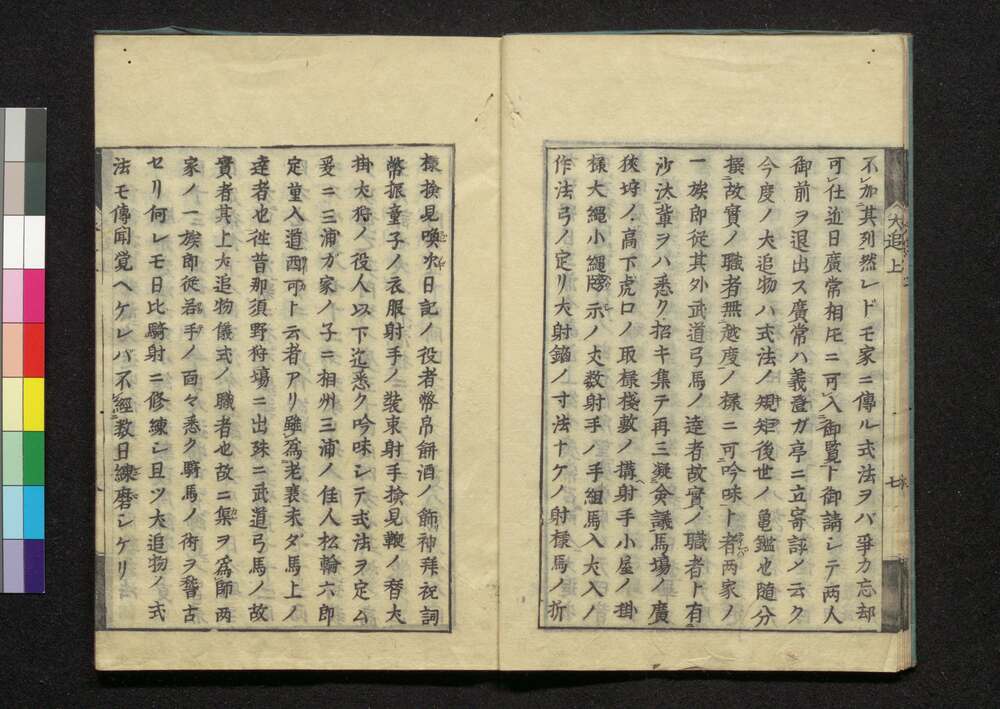 不加其列然レドモ家ニ傳ル式法ヲバ爭カ忘却
可仕近日廣常相疋ニ可入御覽ト御請シテ两人
御前ヲ退出ス廣常ハ義澄ガ亭ニ立寄談シ云ク
今度ノ犬追物ハ式法ノ規矩後世ノ亀鑑也随分
撰故實ノ職者無越度ノ樣ニ可吟味ト者两家ノ
一族郎從其外武道弓馬ノ達者故實ノ職者ト有
沙汰輩ヲハ悉ク招キ集テ再三凝僉議馬場ノ廣
狹埒ノ高下虎口ノ取樣棧敷ノ搆射手小屋ノ掛
樣大縄小縄牓示ノ丈数射手ノ手組馬入犬入ノ
作法弓ノ定リ犬射鏑ノ寸法十ケノ射樣馬ノ折
犬追上
七
樣撿見喚次日記ノ役者幣帛餅酒ノ餝神拜祝詞
幣振童子ノ衣服射手ノ裝束射手撿見鞭ノ替犬
掛犬狩ノ役人以下迄悉ク吟味シテ式法ヲ定ム
爰ニ三浦ガ家ノ子ニ相州三浦ノ住人松輪六郎
定重入道西可ト云者アリ雖爲老衰未ダ馬上ノ
達者也徃昔那須野狩場ニ出殊ニ武道弓馬ノ故
實者其上犬追物儀式ノ職者也故ニ集ヲ爲師两
家ノ一族郎從若手ノ面々悉ク騎馬ノ術ヲ稽古
セリ何レモ日比騎射ニ修練シ且ツ犬追物ノ式
法モ傳聞覚ヘケレバ不經数日練磨シケリ